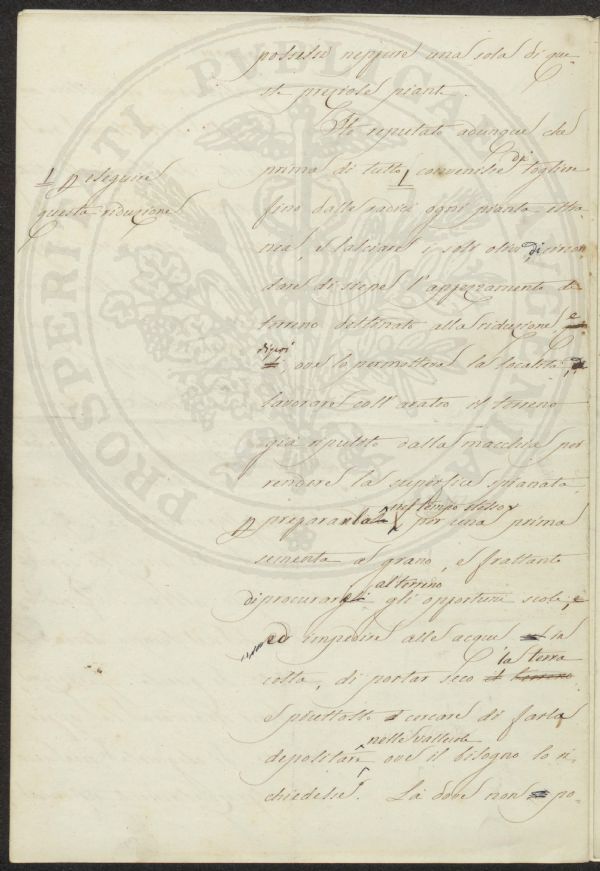 possibile neppure una sola di que-
ste preziose piante.
Ho reputato adunque che
prima di tutto convenisse di togliere
p eseguire
questa riduzione
fino dalle radici ogni pianta estra-
nea, e lasciare i soli olivi, di circon
dare di siepe l'appezzamento di
terreno destinato alla riduzione, e
di poi
, ove lo permetteva la località,
lavorare coll'aratro il terreno
già ripulito dalla macchia per
rendere la superficie spianata,
nel tempo stesso
p prepararla per una prima
sementa a grano, e frattanto
al terreno
di procurare gli opportuni scoli, e
ed impedire alle acque in
la terra
colta, di portar seco il terreno
e piuttosto cercare di farla
nelle vallecole
depositare ove il bisogno lo ri-
chiedesse. Là dove non po-
PROSPERITATI PUBLICAE AUGENDAE